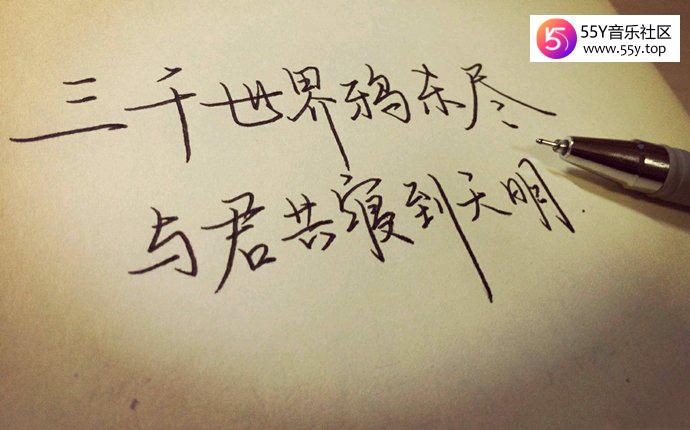 55Y音乐社区
www.55y.top
三千世界鸦杀尽
与君共寝到天明